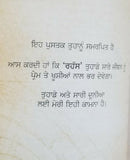 ਇਹ ਪੁਸਤਕ ਤੁਹਾਨੂੰ ਸਮਰਪਿਤ ਹੈ
ਆਸ ਕਰਦੀ ਹਾਂ ਕਿ 'ਰਹੱਸ' ਤੁਹਾਡੇ ਸਾਰੇ ਜੀਵਨ ਨੂੰ
ਪ੍ਰੇਮ ਤੇ ਖੁਸ਼ੀਆਂ ਨਾਲ ਭਰ ਦੇਵੇਗਾ।
ਤੁਹਾਡੇ ਅਤੇ ਸਾਰੀ ਦੁਨੀਆਂ
ਲਈ ਮੇਰੀ ਇਹੀ ਕਾਮਨਾ ਹੈ।